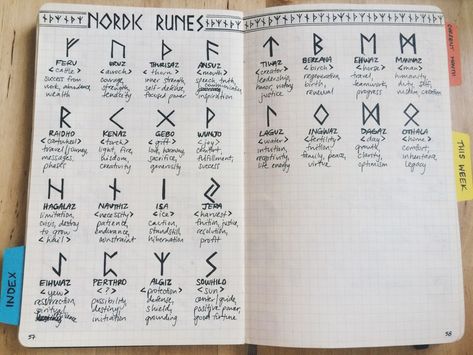 NORDIC RUNES
ᚠ
FEHU
<cattle>
success from
work, abundance,
wealth
ᚢ
URUZ
<auroch>
courage,
strength,
tenacity
ᚦ
THURIDAZ
<thorn>
inner strength,
self-defense,
focused power
ᚨ
ANSUZ
<mouth>
speech, truth,
communication,
inspiration
ᚱ
RAIDHO
<cartwheel>
travel/journey,
messages,
phases
ᚲ
KENAZ
<torch>
light, fire,
wisdom,
creativity
ᚷ
GEBO
<gift>
love, harmony,
sacrifice,
generosity
ᚹ
WUNJO
<joy>
comfort,
fulfillment,
success
ᚺ
HAGALAZ
limitation,
crisis, destroy
to grow
<hail>
ᚾ
NAUTHIZ
<necessity>
patience,
endurance,
constraint
ᛁ
ISA
<ice>
caution,
standstill,
hibernation
ᛃ
JERA
<harvest>
fruition, justice,
resolution,
profit
ᛇ
EIHWAZ
<yew>
resurrection,
spiritual
ᛈ
PERTHRO
<?>
possibility,
destiny,
initiation
ᛉ
ALGIZ
<protection>
defense,
shield,
grounding
ᛊ
SOWHILO
<sun>
center/guide,
positive power,
good fortune
37
ᛏ
TIWAZ
<creator>
leadership,
honor,
victory,
justice
ᛒ
BERKANA
<birch>
regeneration,
birth,
renewal
ᛖ
EHWAZ
<horse>
travel,
teamwork,
progress
ᛗ
MANNAZ
<man>
humanity,
duty, self,
creation
ᛚ
LAGUZ
<water>
intuition,
receptivity,
life energy
ᛜ
INGWAZ
<fertility>
fruition,
family, peace,
virtue
ᛞ
DAGAZ
<day>
growth,
clarity,
optimism
ᛟ
OTHALA
<home>
comfort,
inheritance,
legacy
38
CURRENT MONTH
THIS WEEK
INDEX